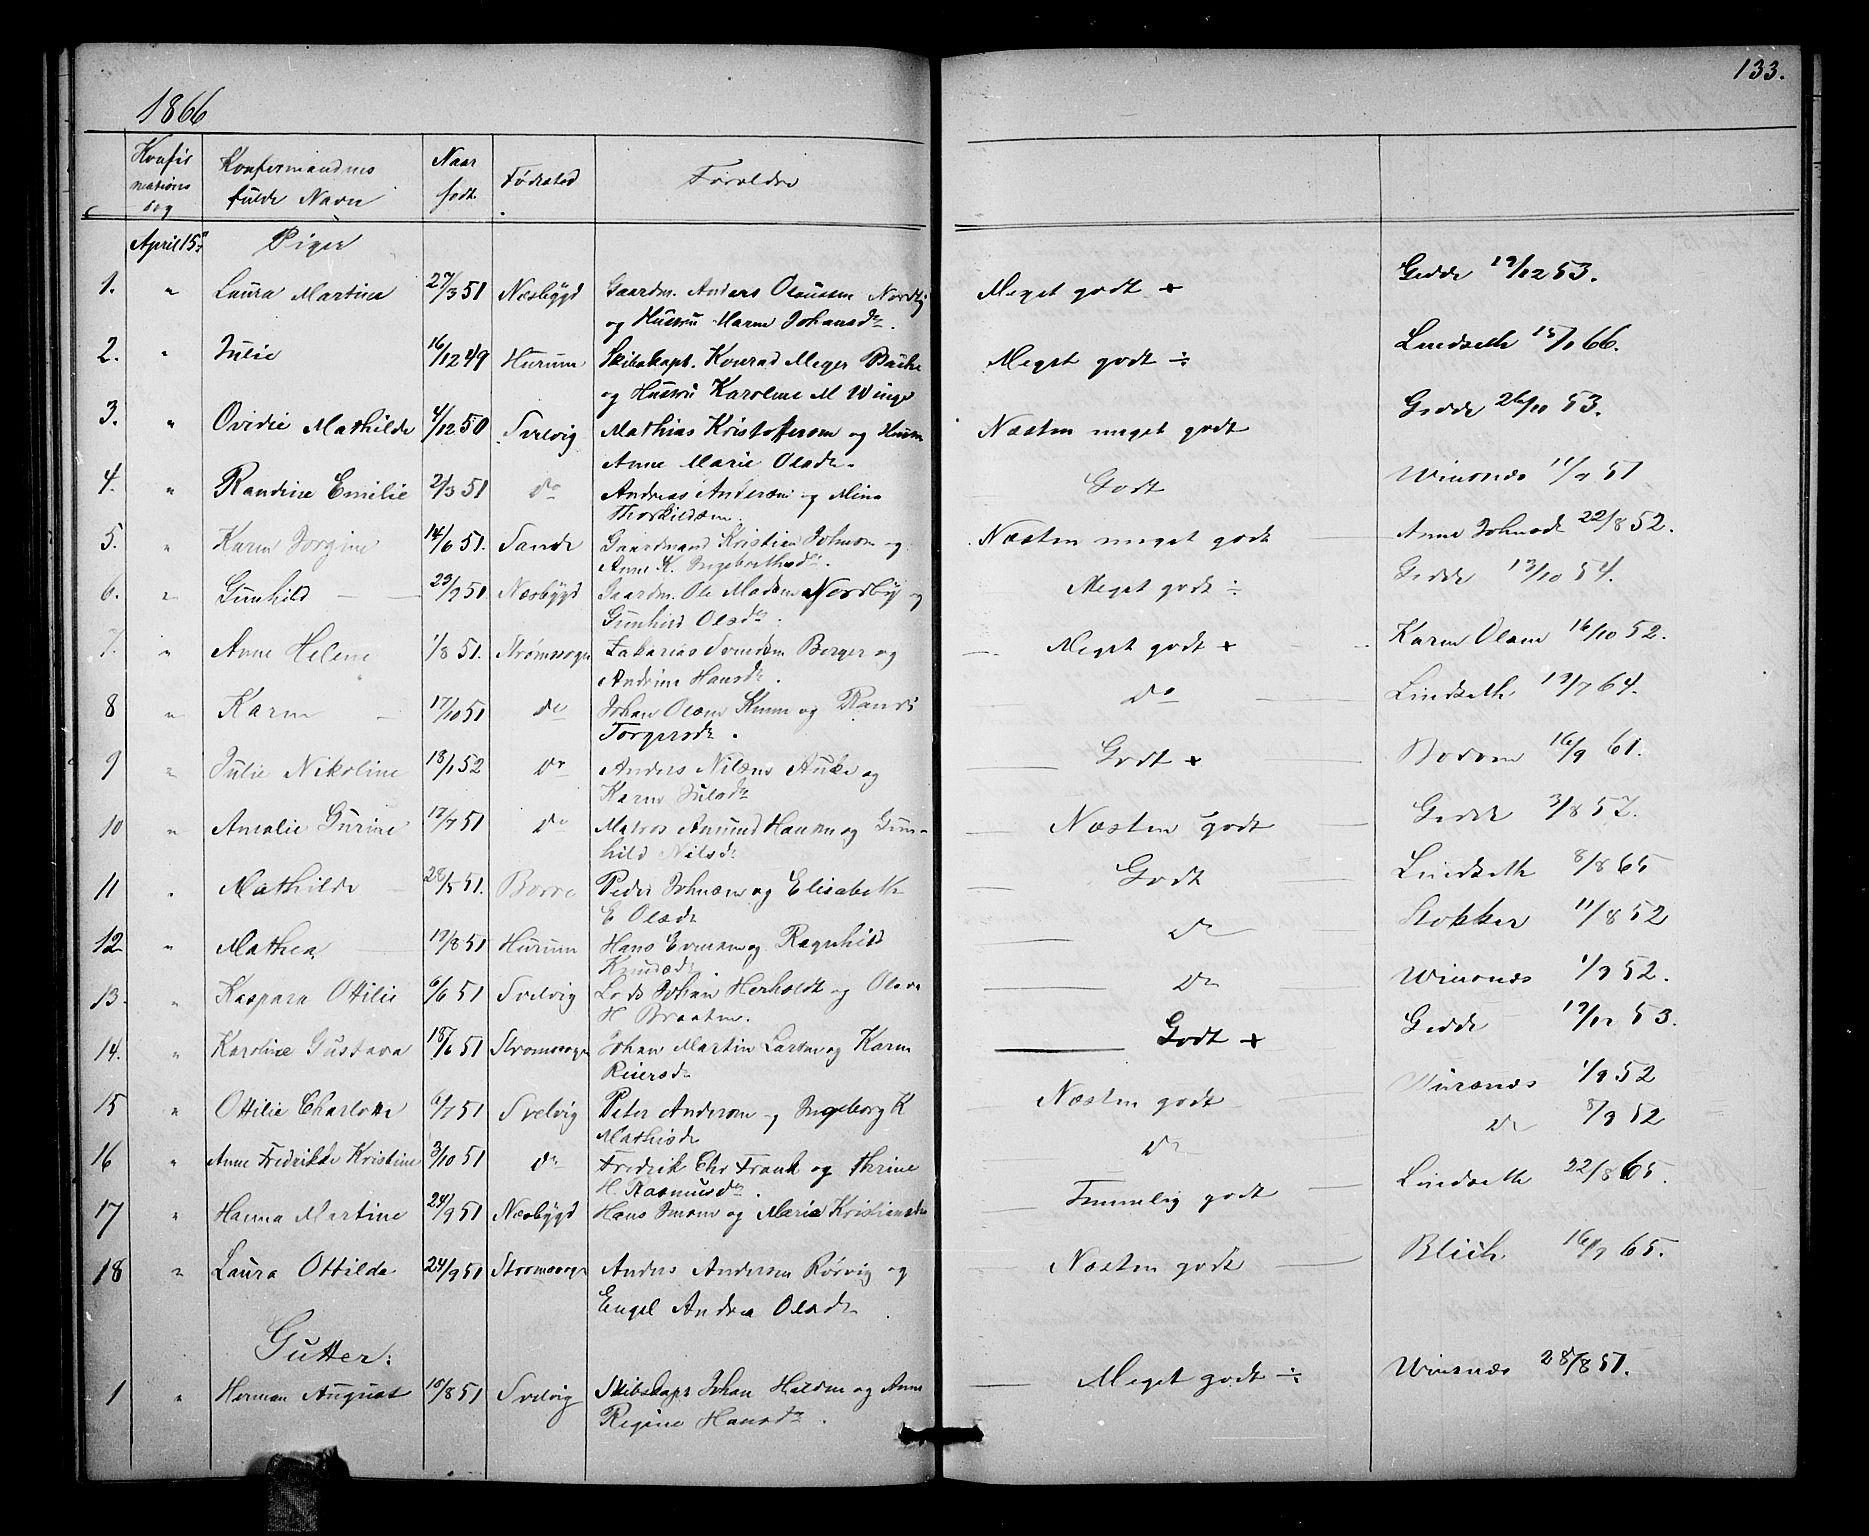 133.
1866
Konfir
mations
dag
Konfirmandens
fulde Navn
Naar
født.
Fødested
Forældre
April 15de Piger
1. " Laura Martine 27/3 51 Næsbygd Gaardm. Anders Olaussen Nordby Meget godt + Gedde 19/12 53.
og Hustru Maren Johansdr.
2. " Julie 16/12 49 Hurum Skibskapt. Konrad Meyer Bache Meget godt ÷ Lindseth 15/1 66.
og Hustru Karoline M Winge
3. " Ovidie Mathilde 4/12 50 Svelvig Mathias Kristoffersen og Hustru Næsten meget godt Gedde 26/10 53.
Anne Marie Olsdr.
4. " Randine Emilie 2/3 51 do Andreas Andersen og Mina Godt Winsnæs 11/9 51
Thorkildsen.
5. " Karen Jorgine 14/6 51. Sande Gaardmand Kristian Johnsen og Næsten meget godt Anne Johnsdr 22/8 52.
Anne K. Ingebrethsdr.
6. " Gunhild 29/9 51 Næsbygd Gaardm. Ole Madsen Nordby og Meget godt ÷ Gedde 13/10 54.
Gunhild Olsdr.
7. " Anne Helene 1/8 51. Strømsogn Zakarias Svendsen Berger og Meget godt + Karen Olsen 16/10 52.
Andrine Hansdr.
8 " Karen 17/10 51 do Johan Olsen og Randi do Lindseth 19/7 64.
Torgersdr.
9 " Julie Nikoline 18/1 52 do Anders Nilsen og Godt + Bodom 16/9 61.
Karen Julsdr
10 " Amalie Gurine 17/7 51 do Matros Amund Hansen og Gun- Næsten godt Gedde 3/8 57.
hild Nilsdr
11 " Mathilde 28/5 51. Borre Peder Johnsen og Elisabeth Godt Lindseth 8/8 65
E Olsdr
12 " Mathea 19/8 51 Hurum Hans Evensen og Ragnhild do Stokker 11/8 52
Knudsdr.
13. " Kaspara Otilie 6/6 51 Svelvig Lods Johan Herholdt og Olava do Winsnæs 1/9 52.
H Braaten.
14. " Karoline Gustava 18/6 51 Strømsogn Johan Martin Larsen og Karen Godt + Gedde 19/12 53.
Reiersdr
15 " Otilie Charlotte 6/7 51 Svelvig Peter Andersen og Ingeborg K Næsten godt Winsnæs 1/9 52
Mathisdr
16 " Anne Fredrikke Kristine 3/10 51 do Fredrik Chr Frank og Thrine do do 8/9 52
H. Rasmusdr.
17 " Hanna Martine 24/9 51 Næsbygd Hans Jensen og Maria Kristiansdr Temmelig godt Lindseth 22/8 65.
18 " Laura Ottilde 24/9 51 Strømsogn Anders Andersen Rørvig og Næsten godt Blich 16/7 65.
Engel Andrea Olsdr
Gutter:
1 " Herman August 15/8 51 Svelvig Skibskapt Johan Halden og Anne Meget godt ÷ Winsnæs 28/8 51.
Regine Hansdr.